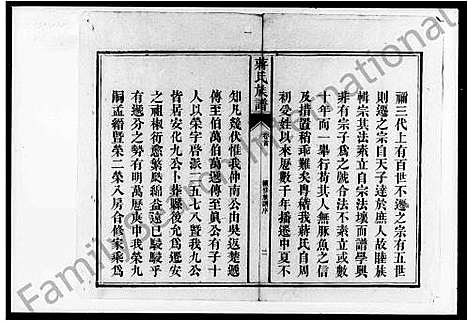 禰三代上有百世不遷之宗有五世
則遷之宗自天子達於庶人故睦族
輯宗其法素立自宗法壞而譜學興
非有宗子爲之號合法不素立或數
十年而一舉行苟其人無豚魚之信
及措置稍乖難矣粤稽我蔣氏自周
初受姓以來歷數千年播遷中夏不
蔣氏族譜
知凡幾代惟我仲南公由吳返楚遞
傳至伯萬伯萬遞傳至眞公有子十
人以榮字啓派一五七八暨我九公
皆居安化九公卜葬縣後允爲遷安
之祖椒衍蔥繁瓞綿益遠已駸駸乎
有遞分之勢有明萬歷庚申我榮九
嗣孟縉暨榮二榮八房合修家乘爲
Family of International